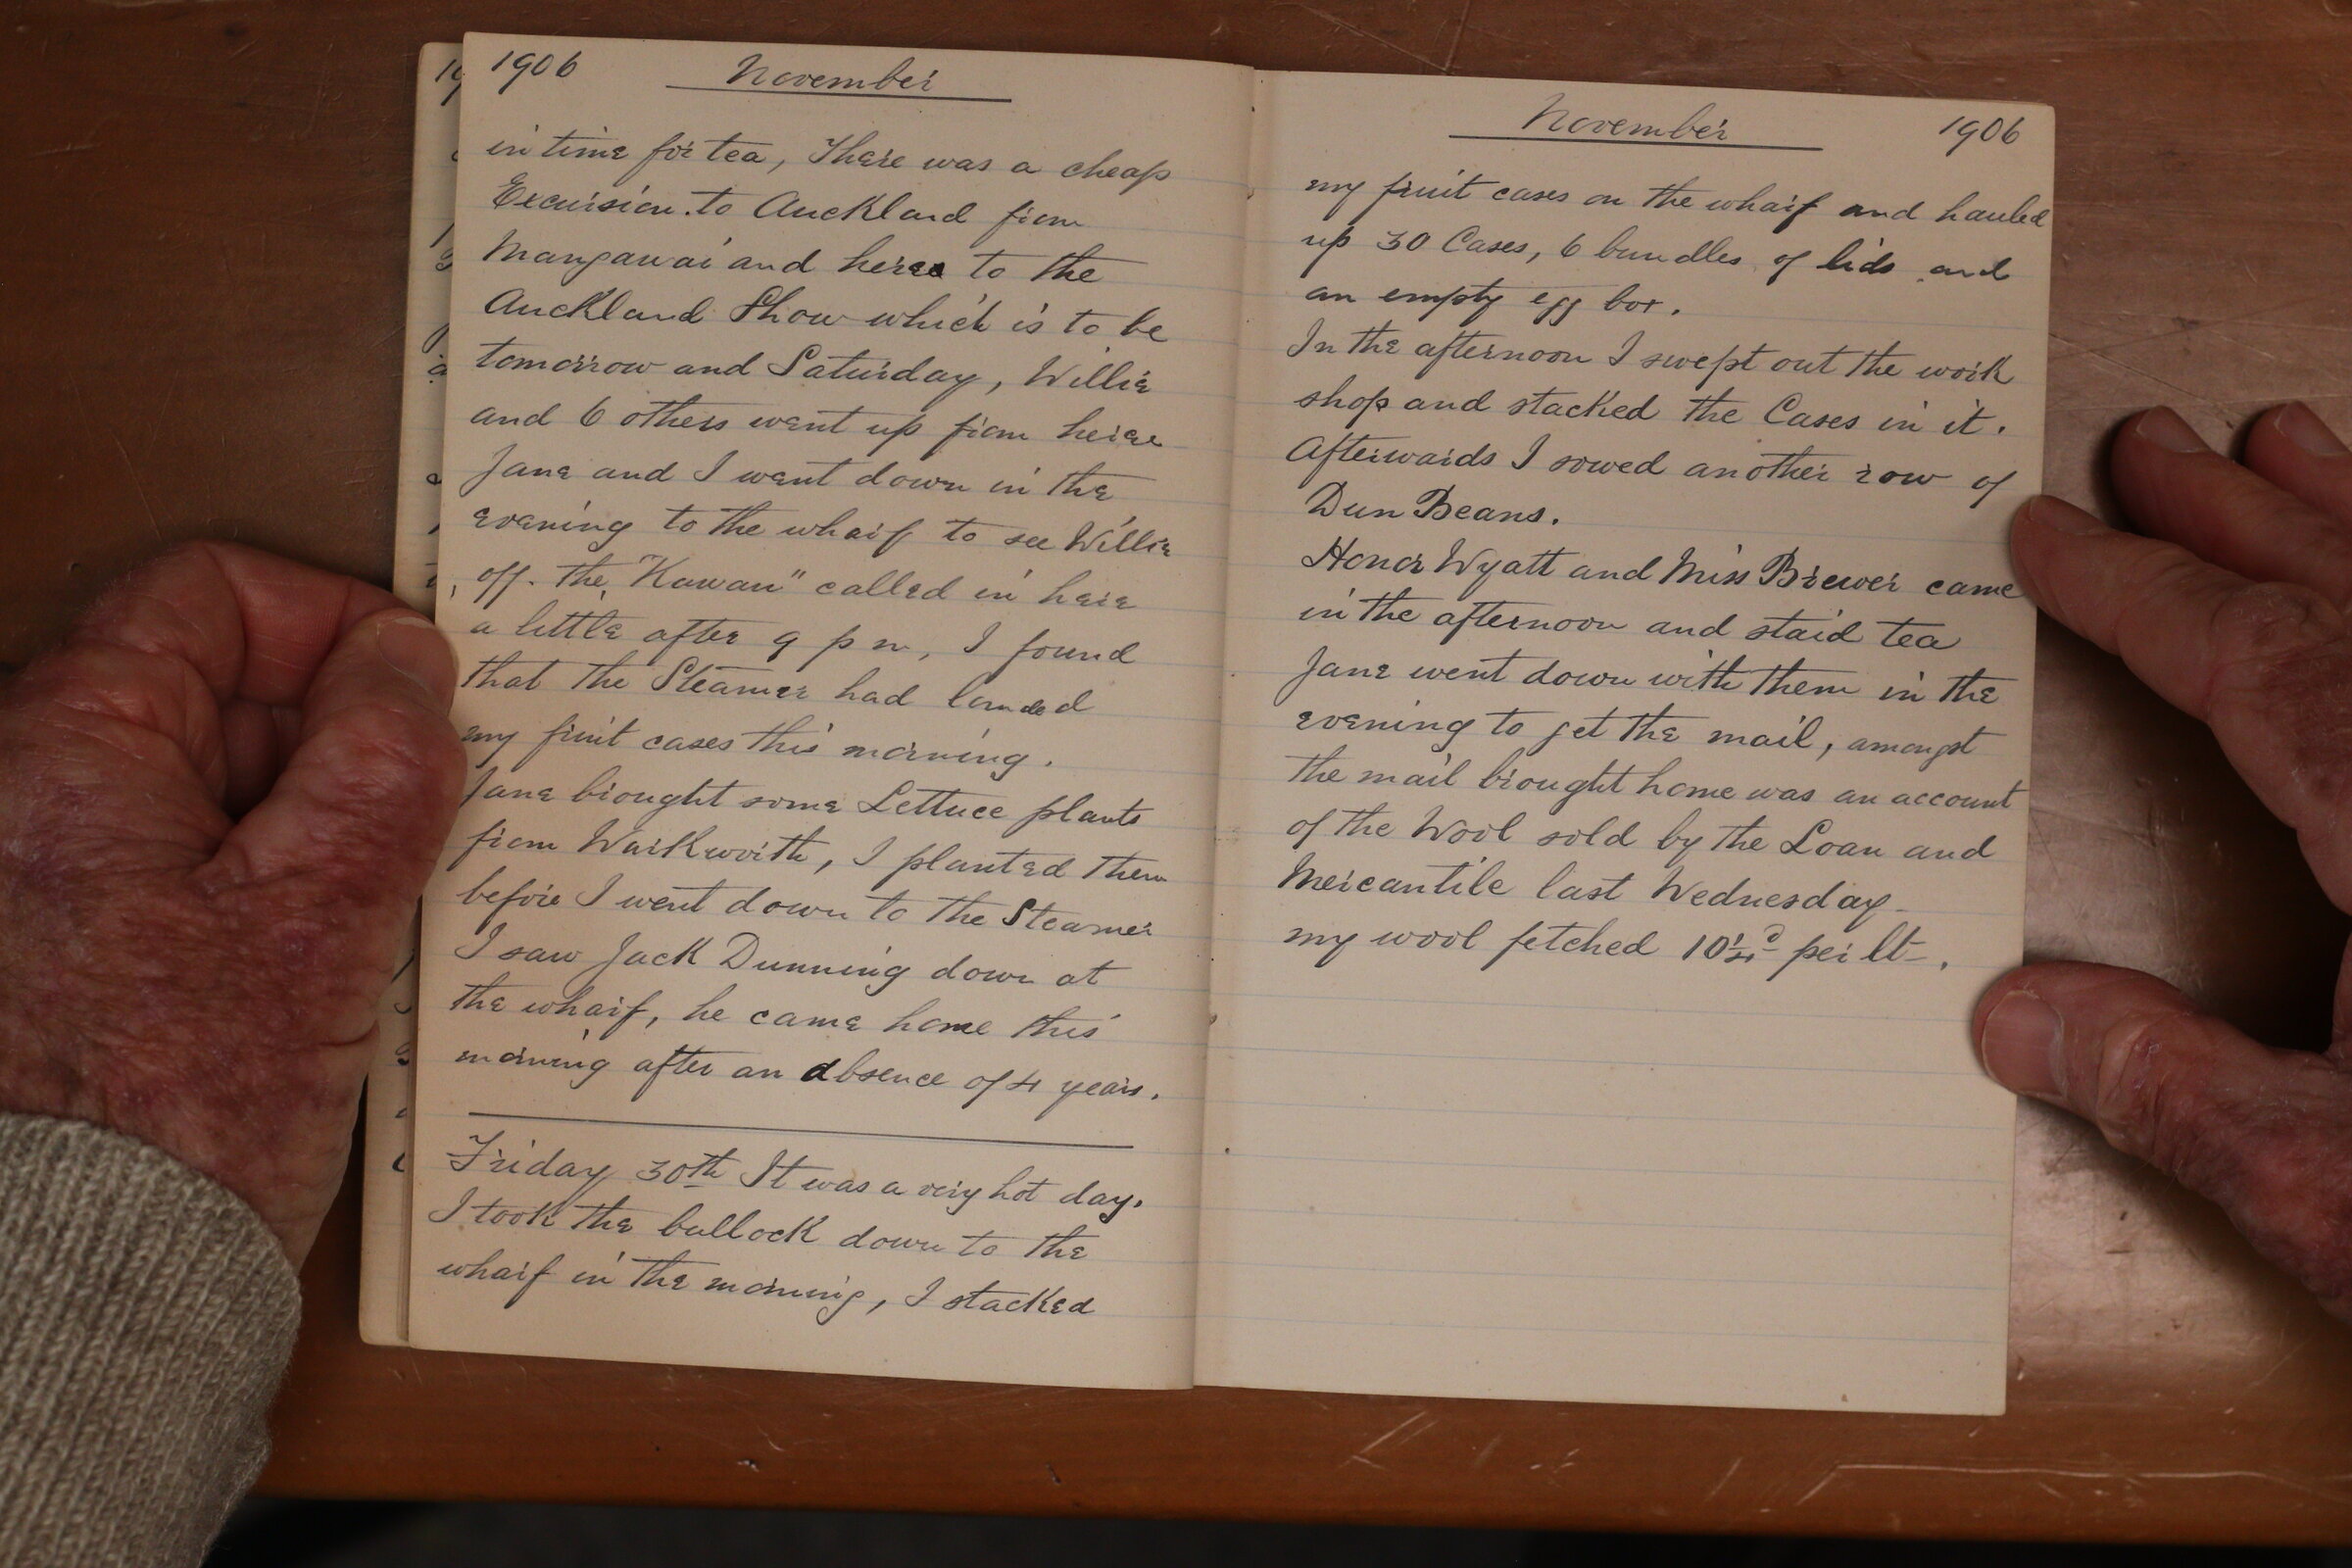 1906 November
in time for tea, There was a cheap
Excursion to Auckland from
Mangawai and here to the
Auckland Show which is to be
tomorrow and Saturday, Willie
and 6 others went up from here
Jane and I went down in the
evening to the wharf to see Willie
off. the "Kawau" called in here
a little after 9 p m, I found
that the Steamer had landed
my fruit cases this morning.
Jane brought some Lettuce plants
from Warkworth, I planted them
before I went down to the Steamer
I saw Jack Dunning down at
the wharf, he came home this
morning after an absence of 4 years.
Friday 30th It was a very hot day.
I took the bullock down to the
wharf in the morning, I stacked
November 1906
my fruit cases on the wharf and hauled
up 30 Cases, 6 bundles of lids and
an empty egg box.
In the afternoon I swept out the work
shop and stacked the Cases in it.
Afterwards I sowed another row of
Dun Beans.
Honor Wyatt and Miss Brewer came
in the afternoon and staid tea
Jane went down with them in the
evening to get the mail, amongst
the mail brought home was an account
of the Wool sold by the Loan and
Mercantile last Wednesday
my wool fetched 10¼d per lb.